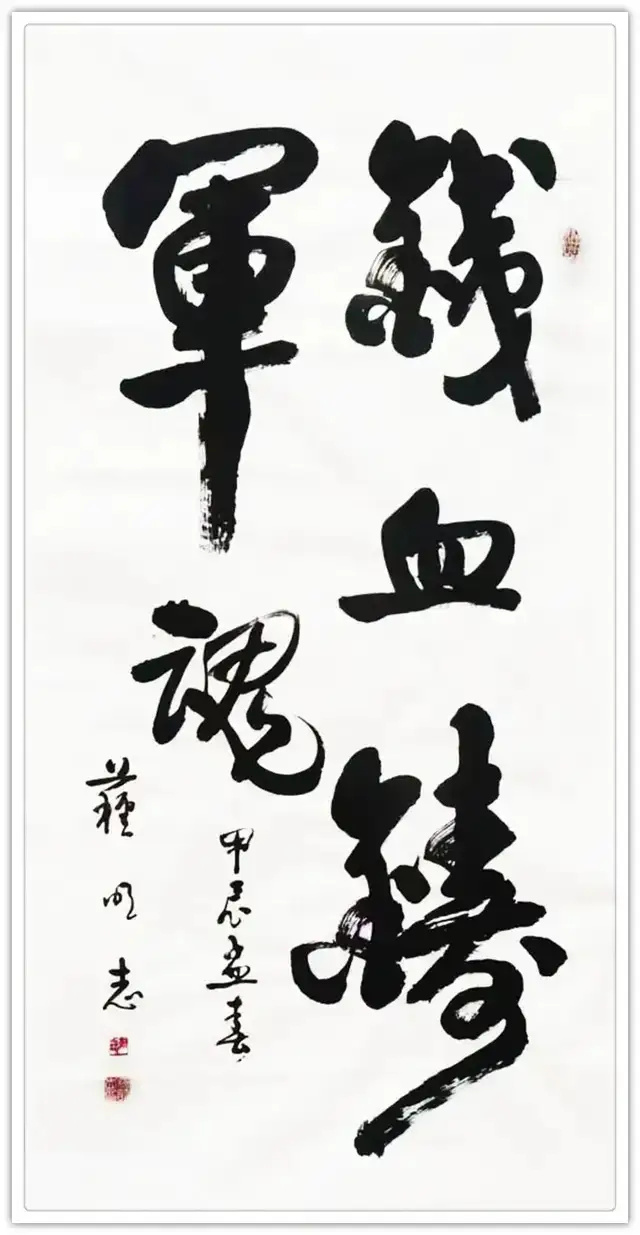 鐵血鑄
軍魂
甲辰孟春
明志